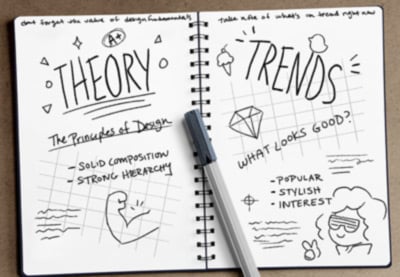 dont forget the value of design fundamentals
A+
THEORY
The Principles of Design
- SOLID COMPOSITION
- STRONG HIERARCHY
Take note of what's on trend right now
TRENDS
WHAT LOOKS GOOD?
- POPULAR
- STYLISH
- INTEREST